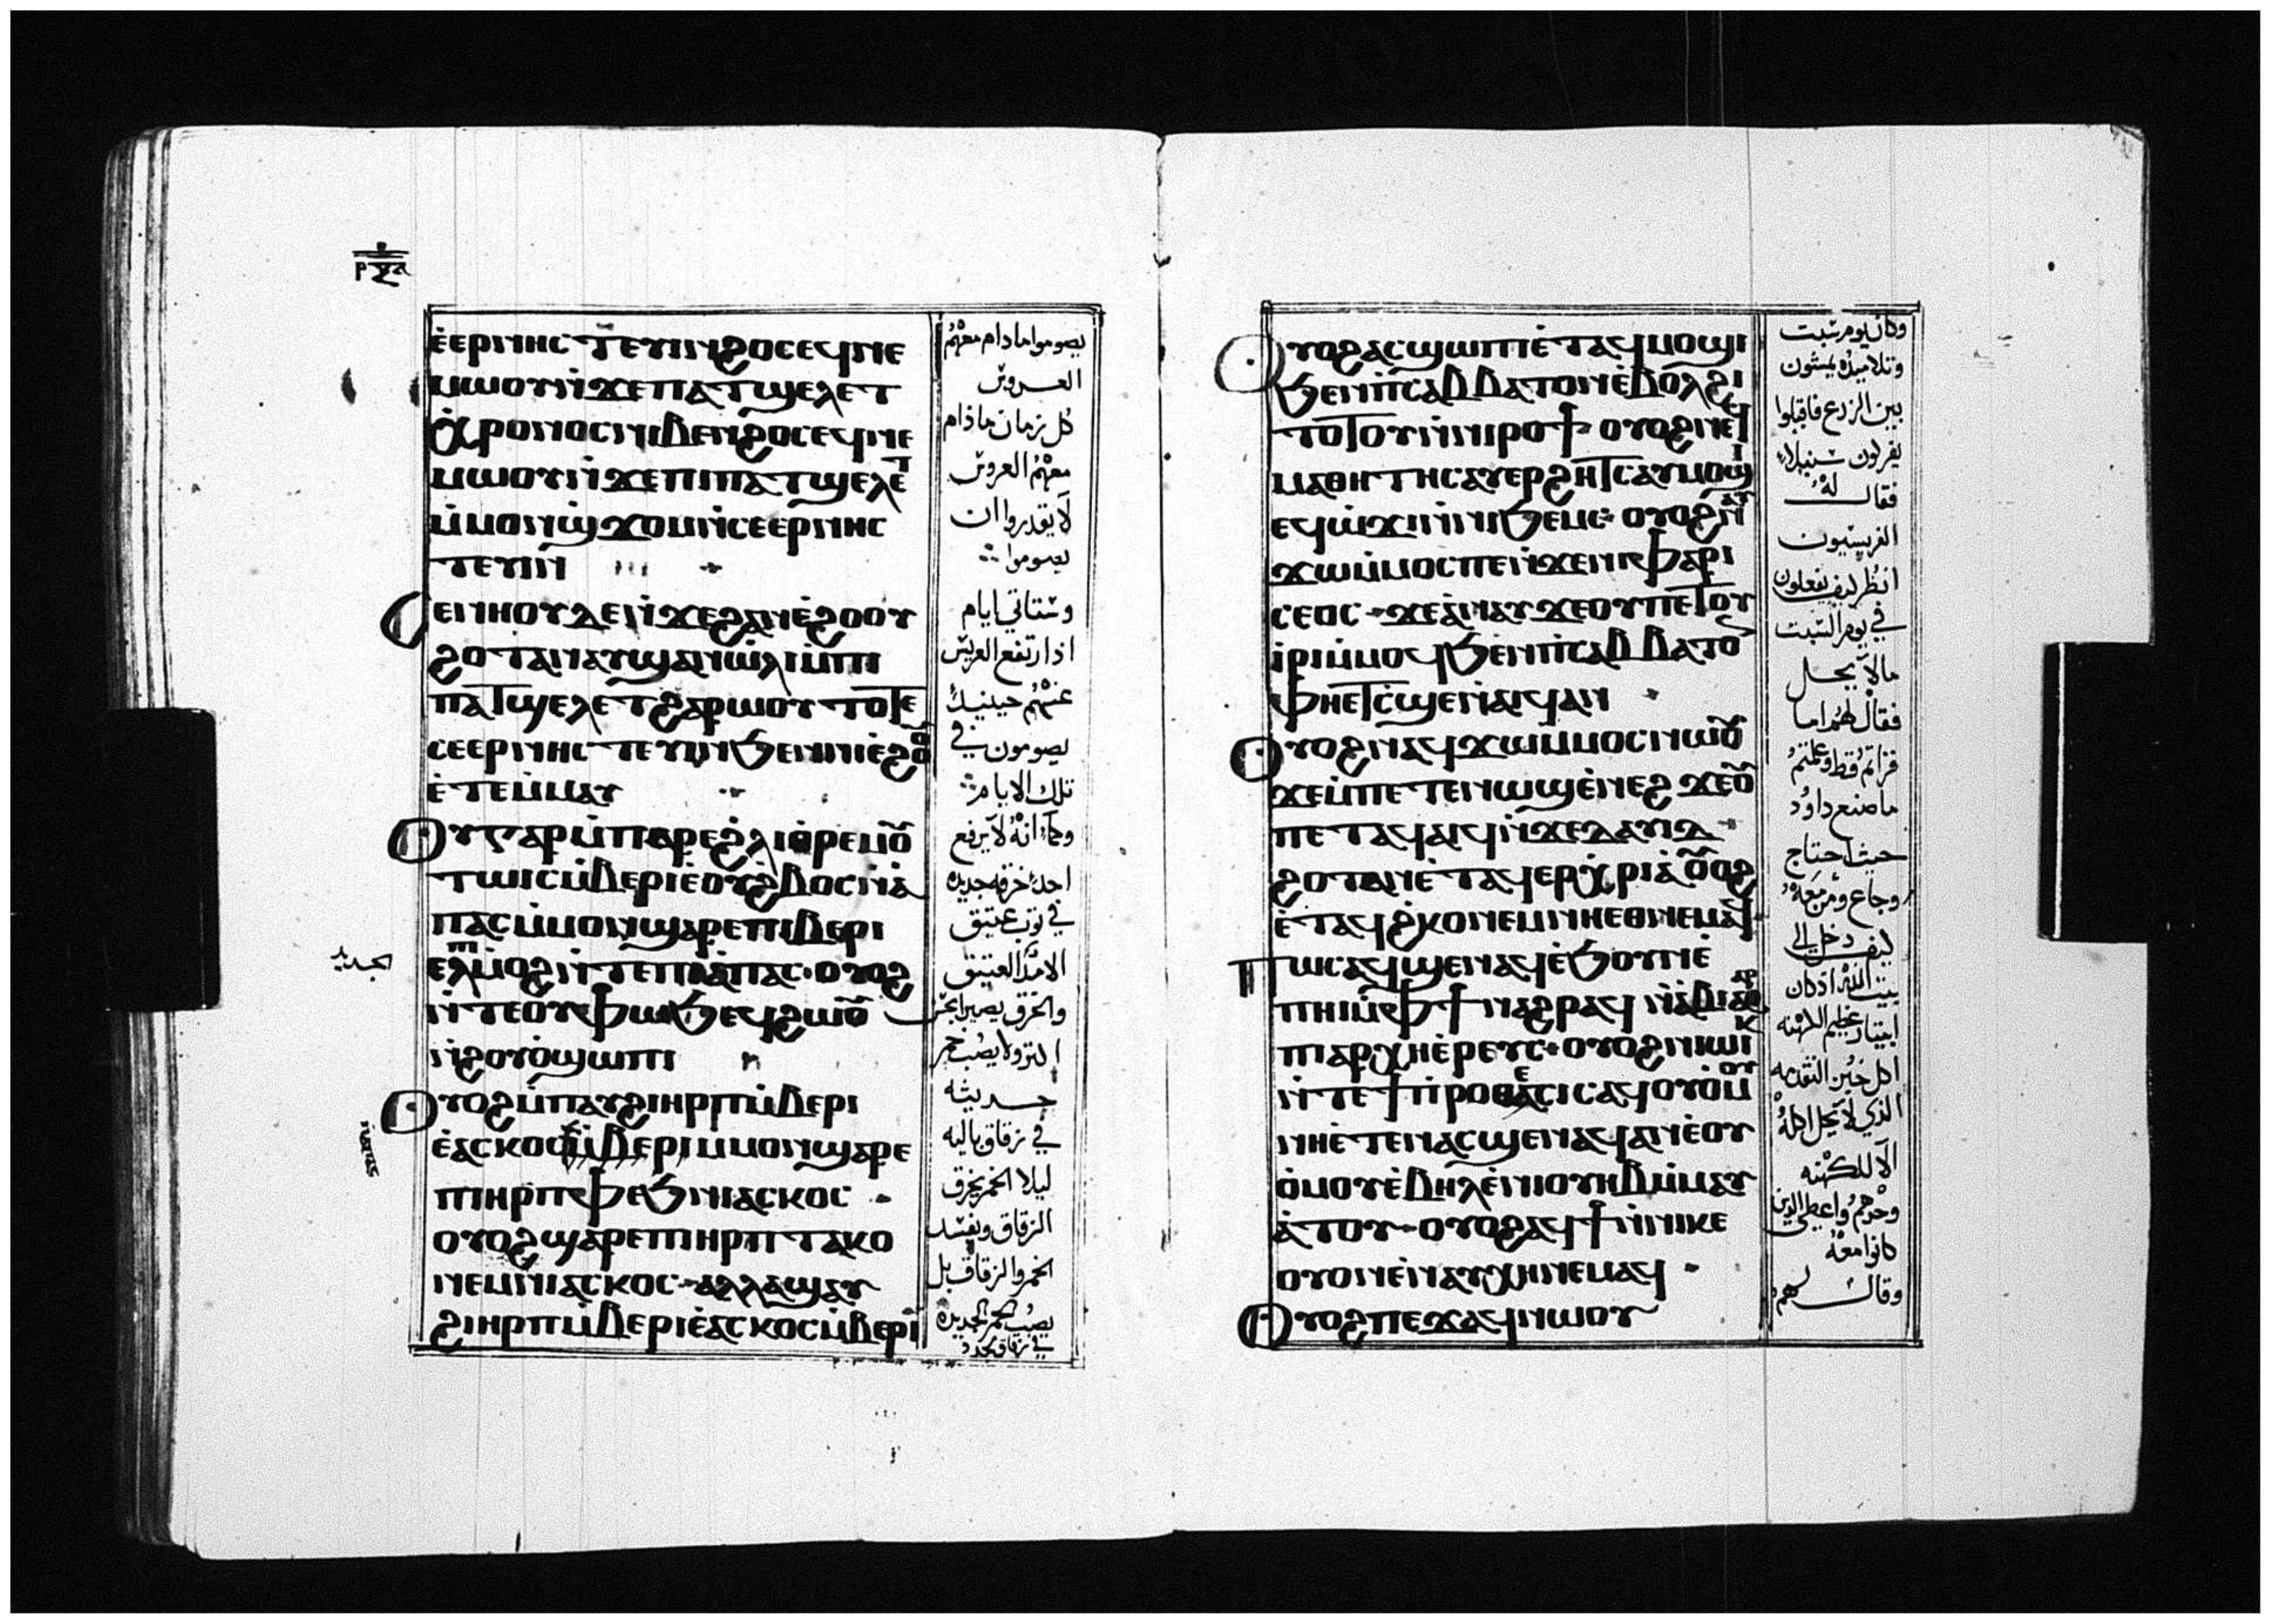 ⲉ̀ⲉⲣⲛⲏⲥⲧⲉⲩⲓⲛϩⲟⲥⲉϥⲛⲉ
ⲙⲱⲟⲩⲛ̀ϫⲉⲡⲁⲧϣⲉⲗⲉⲧ
ⲭ̀ⲣⲟⲛⲟⲥⲛⲓⲃⲉⲛϩⲟⲥⲉϥⲛⲉ
ⲙⲱⲟⲩⲛ̀ϫⲉⲡⲓⲡⲁⲧϣⲉⲗⲉⲧ
ⲙ̀ⲙⲟⲛϣ̀ϫⲟⲙⲛ̀ⲥⲉⲉⲣⲛⲏⲥ
ⲧⲉⲩⲓⲛ
ⲥⲉⲛⲏⲟⲩⲇⲉⲛ̀ϫⲉϩⲁⲛⲉ̀ϩⲟⲟⲩ
ϩⲟⲧⲁⲛⲁⲩϣⲁⲛⲱ̀ⲗⲓⲙ̀ⲡⲓ
ⲡⲁⲧϣⲉⲗⲉⲧϩⲁⲣⲱⲟⲩⲧⲟⲧⲉ
ⲥⲉⲉⲣⲛⲏⲥⲧⲉⲩⲓⲛϧⲉⲛⲛⲓⲉ̀ϩⲟⲟⲩ
ⲉ̀ⲧⲉⲙ̀ⲙⲁⲩ
ⲟⲩⲅⲁⲣⲙ̀ⲡⲁⲣⲉϩ̀ⲗⲓϩⲣⲉⲙⲟ
ⲧⲱⲓⲥⲙ̀ⲃⲉⲣⲓⲉ̀ⲟⲩϩ̀ⲃⲟⲥⲛ̀ⲁ̀
ⲡⲁⲥⲙ̀ⲙⲟⲛϣⲁⲣⲉⲡⲓⲃⲉⲣⲓ
ⲉⲗⲡ̀ⲙⲟϩⲛ̀ⲧⲉⲡⲓⲁ̀ⲡⲁⲥ·ⲟⲩⲟϩ
ⲛ̀ⲧⲉⲟⲩⲫⲱϧⲉϥϩⲱⲟⲩ
ⲛ̀ϩⲟⲩⲟ̀ϣⲱⲡⲓ
ⲟⲩⲟϩⲙ̀ⲡⲁⲩϩⲓⲏⲣⲡⲙ̀ⲃⲉⲣⲓ
ⲉ̀ⲁⲥⲕⲟⲥⲙ̀ⲃⲉⲣⲓⲙⲙⲟⲛϣⲁⲣⲉ
ⲡⲓⲏⲣⲡⲫⲉϧⲛⲓⲁⲥⲕⲟⲥ
ⲟⲩⲟϩϣⲁⲣⲉⲡⲓⲏⲣⲡⲧⲁⲕⲟ
ⲛⲉⲙⲛⲓⲁⲥⲕⲟⲥ·ⲁⲗⲗⲁϣⲁⲩ
ϩⲓⲏⲣⲡⲙ̀ⲃⲉⲣⲓⲉ̀ⲁⲥⲕⲟⲥⲙ̀ⲃⲉⲣⲓ
يصوموا مادام معهم
العروس
كل زمان ماذام
معهم العروس
لا يقدروا ان
يصوموا
وستاتي ايام
اذا ارتفع العريس
عنهم حينيذ
يصومون في
تلك الايام
وكما انه لا يرفع
احد خرقه جديده
في ثوب عتيق
الا مد العتيق
والخرق يصير
اكثر ولا يصب خمر
حديثه
في زقاق باليه
ليلا الخمر يخرق
الزقاق ويفسد
الخمر والزقاق بل
يصب الخمر الجديده
في زقاق جدد
الجديد
ⲟⲩⲟϩⲁⲥϣⲱⲡⲓⲉ̀ⲧⲁϥⲙⲟϣⲓ
ϧⲉⲛⲡ̀ⲥⲁⲃⲃⲁⲧⲟⲛⲉ̀ⲃⲟⲗϩⲓ
ⲧⲟⲧⲟⲩⲛ̀ⲛⲓⲣⲟϯ·ⲟⲩⲟϩⲛⲉϥ
ⲙⲁⲑⲏⲧⲏⲥⲁⲩⲉⲣϩⲏⲧⲥⲁⲩⲙⲟϣⲓ
ⲉϥⲱ̀ϫⲓⲛ̀ⲛⲓϧⲉⲙⲥ·ⲟⲩⲟϩⲛⲁⲩ
ϫⲱⲙ̀ⲙⲟⲥⲡⲉⲛ̀ϫⲉⲛⲓⲫⲁⲣⲓ
ⲥⲉⲟⲥ·ϫⲉⲁ̀ⲛⲁⲩϫⲉⲟⲩⲡⲉⲧⲟⲩ
ⲓ̀ⲣⲓⲙ̀ⲙⲟϥϧⲉⲛⲡ̀ⲥⲁⲃⲃⲁⲧⲟ
ⲫⲏⲉⲧⲥ̀ϣⲉⲛ̀ⲁⲓϥⲁⲛ
ⲟⲩⲟϩⲛⲁϥϫⲱⲙⲙⲟⲥⲛⲱⲟⲩ
ϫⲉⲙ̀ⲡⲉⲧⲉⲛⲱϣⲉ̀ⲛⲉϩϫⲉⲟⲩ
ⲡⲉⲧⲁϥⲁⲓϥⲛ̀ϫⲉⲇⲁⲩⲓⲇ
ϩⲟⲧⲁⲛⲉ̀ⲧⲁϥⲉⲣⲭ̀ⲣⲓⲁ̀ⲟⲩⲟϩ
ⲉ̀ⲧⲁϥϩ̀ⲕⲟⲛⲉⲙⲛⲏⲉⲑⲛⲉⲙⲁϥ
ⲡⲱⲥⲁϥϣⲉⲛⲁϥⲉ̀ϧⲟⲩⲛⲉ̀
ⲡⲏⲓⲙ̀ⲫϯⲛⲁϩⲣⲁϥⲛ̀ⲁ̀ⲃⲓⲁⲑⲁⲣ
ⲡⲓⲁⲣⲭⲏⲉ̀ⲣⲉⲩⲥ·ⲟⲩⲟϩⲛⲓⲱⲓⲕ
ⲛ̀ⲧⲉϯⲡ̀ⲣⲟⲑⲉⲥⲓⲥⲁϥⲟⲩⲟ̀ⲙⲟⲩ
ⲛⲏⲉ̀ⲧⲉⲛⲁⲥϣⲉⲛⲁϥⲁⲛⲉ̀ⲟⲩ
ⲟ̀ⲙⲟⲩⲉ̀ⲃⲏⲗⲉ̀ⲛⲓⲟⲩⲏⲃⲙ̀ⲙⲁⲩ
ⲁ̀ⲧⲟⲩ·ⲟⲩⲟϩⲁϥϯⲛ̀ⲛⲓⲕⲉ
ⲟⲩⲟⲛⲉ̀ⲛⲁⲩⲭⲏⲛⲉⲙⲁϥ
ⲟⲩⲟϩⲡⲉϫⲁϥⲛⲱⲟⲩ
وكان يوم سبت
وتلاميذه يمشون
بين الزرع فاقبلوا
يفركون سنبلا
فقال له
الفريسيون
انظر كيف يفعلون
في يوم السبت
ما لا يحل
فقال لهم اما
قراتم قط وعلمتم
ما صنع داود
حيث احتاج
وجاع ومن معه
كيف دخل الي
بيت الله اذ كان
ابيتار عظيم الكهنه
اكل خبز التقدمه
الذي لا يحل اكله
الا للكهنه
وحدهم واعطي الذين
كانوا معه
وقال لهم